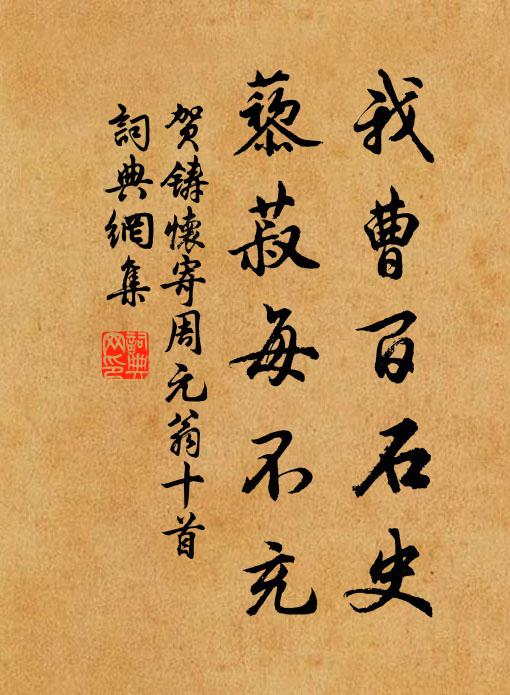 我曹百石史
藜菽每不充
贺铸懷寄周元翁十首
詞典網集
詞典网印